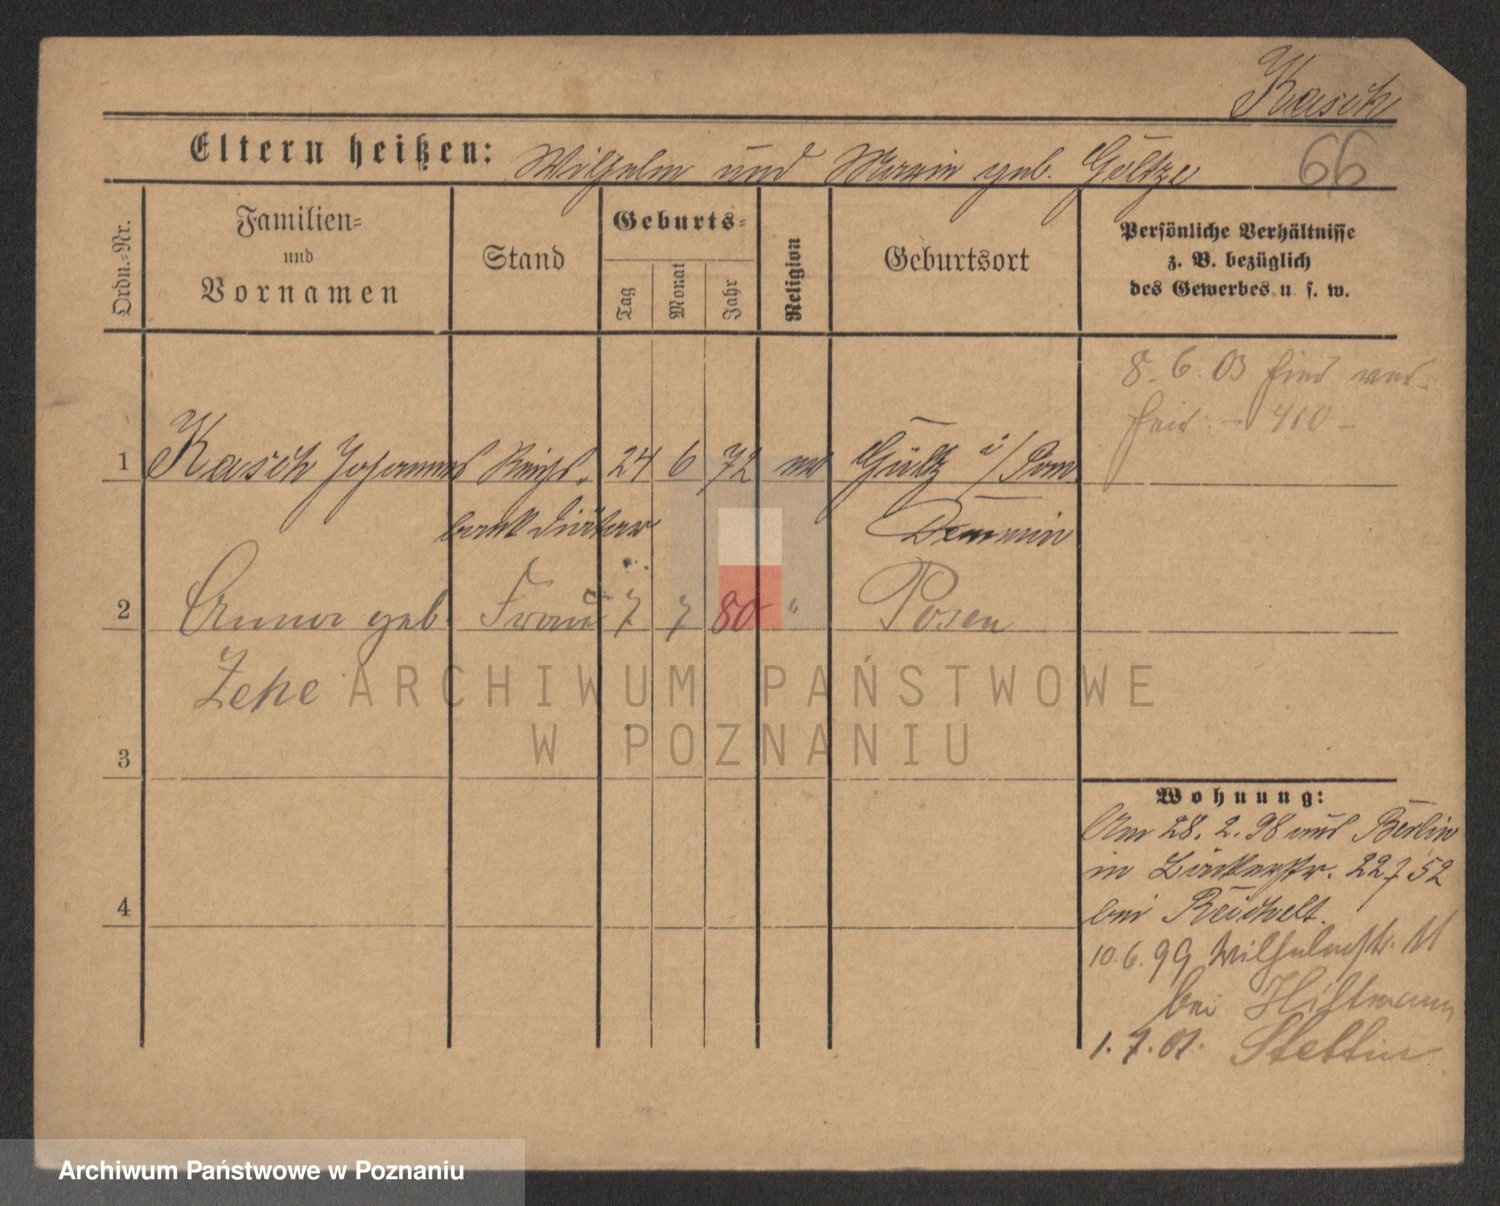 Kasch
Eltern heißen: Wilhelm und Marie geb. Gültze
66
Ordn.-Nr.
Familien-
und
Vornamen
Stand
Geburts-
Tag
Monat
Jahr
Religion
Geburtsort
Persönliche Verhältnisse
z. B. bezüglich
des Gewerbes u. s. w.
8. 6. 03
410
1 Kasch Johannes Reichs- 24 6 72 ev Gültz i/Pom
bank Diätar Demmin
2 Anna geb. Frau 7 7 80 " Posen
Zehe
3
4
Wohnung:
Am 28. 2. 98 aus Berlin
in Bäckerstr. 22
bei Reichelt.
10. 6. 99 Wilhelmstr. 11
bei Hiltmann
1. 7. 01. Stettin
ARCHIWUM PAŃSTWOWE
W POZNANIU
Archiwum Państwowe w Poznaniu